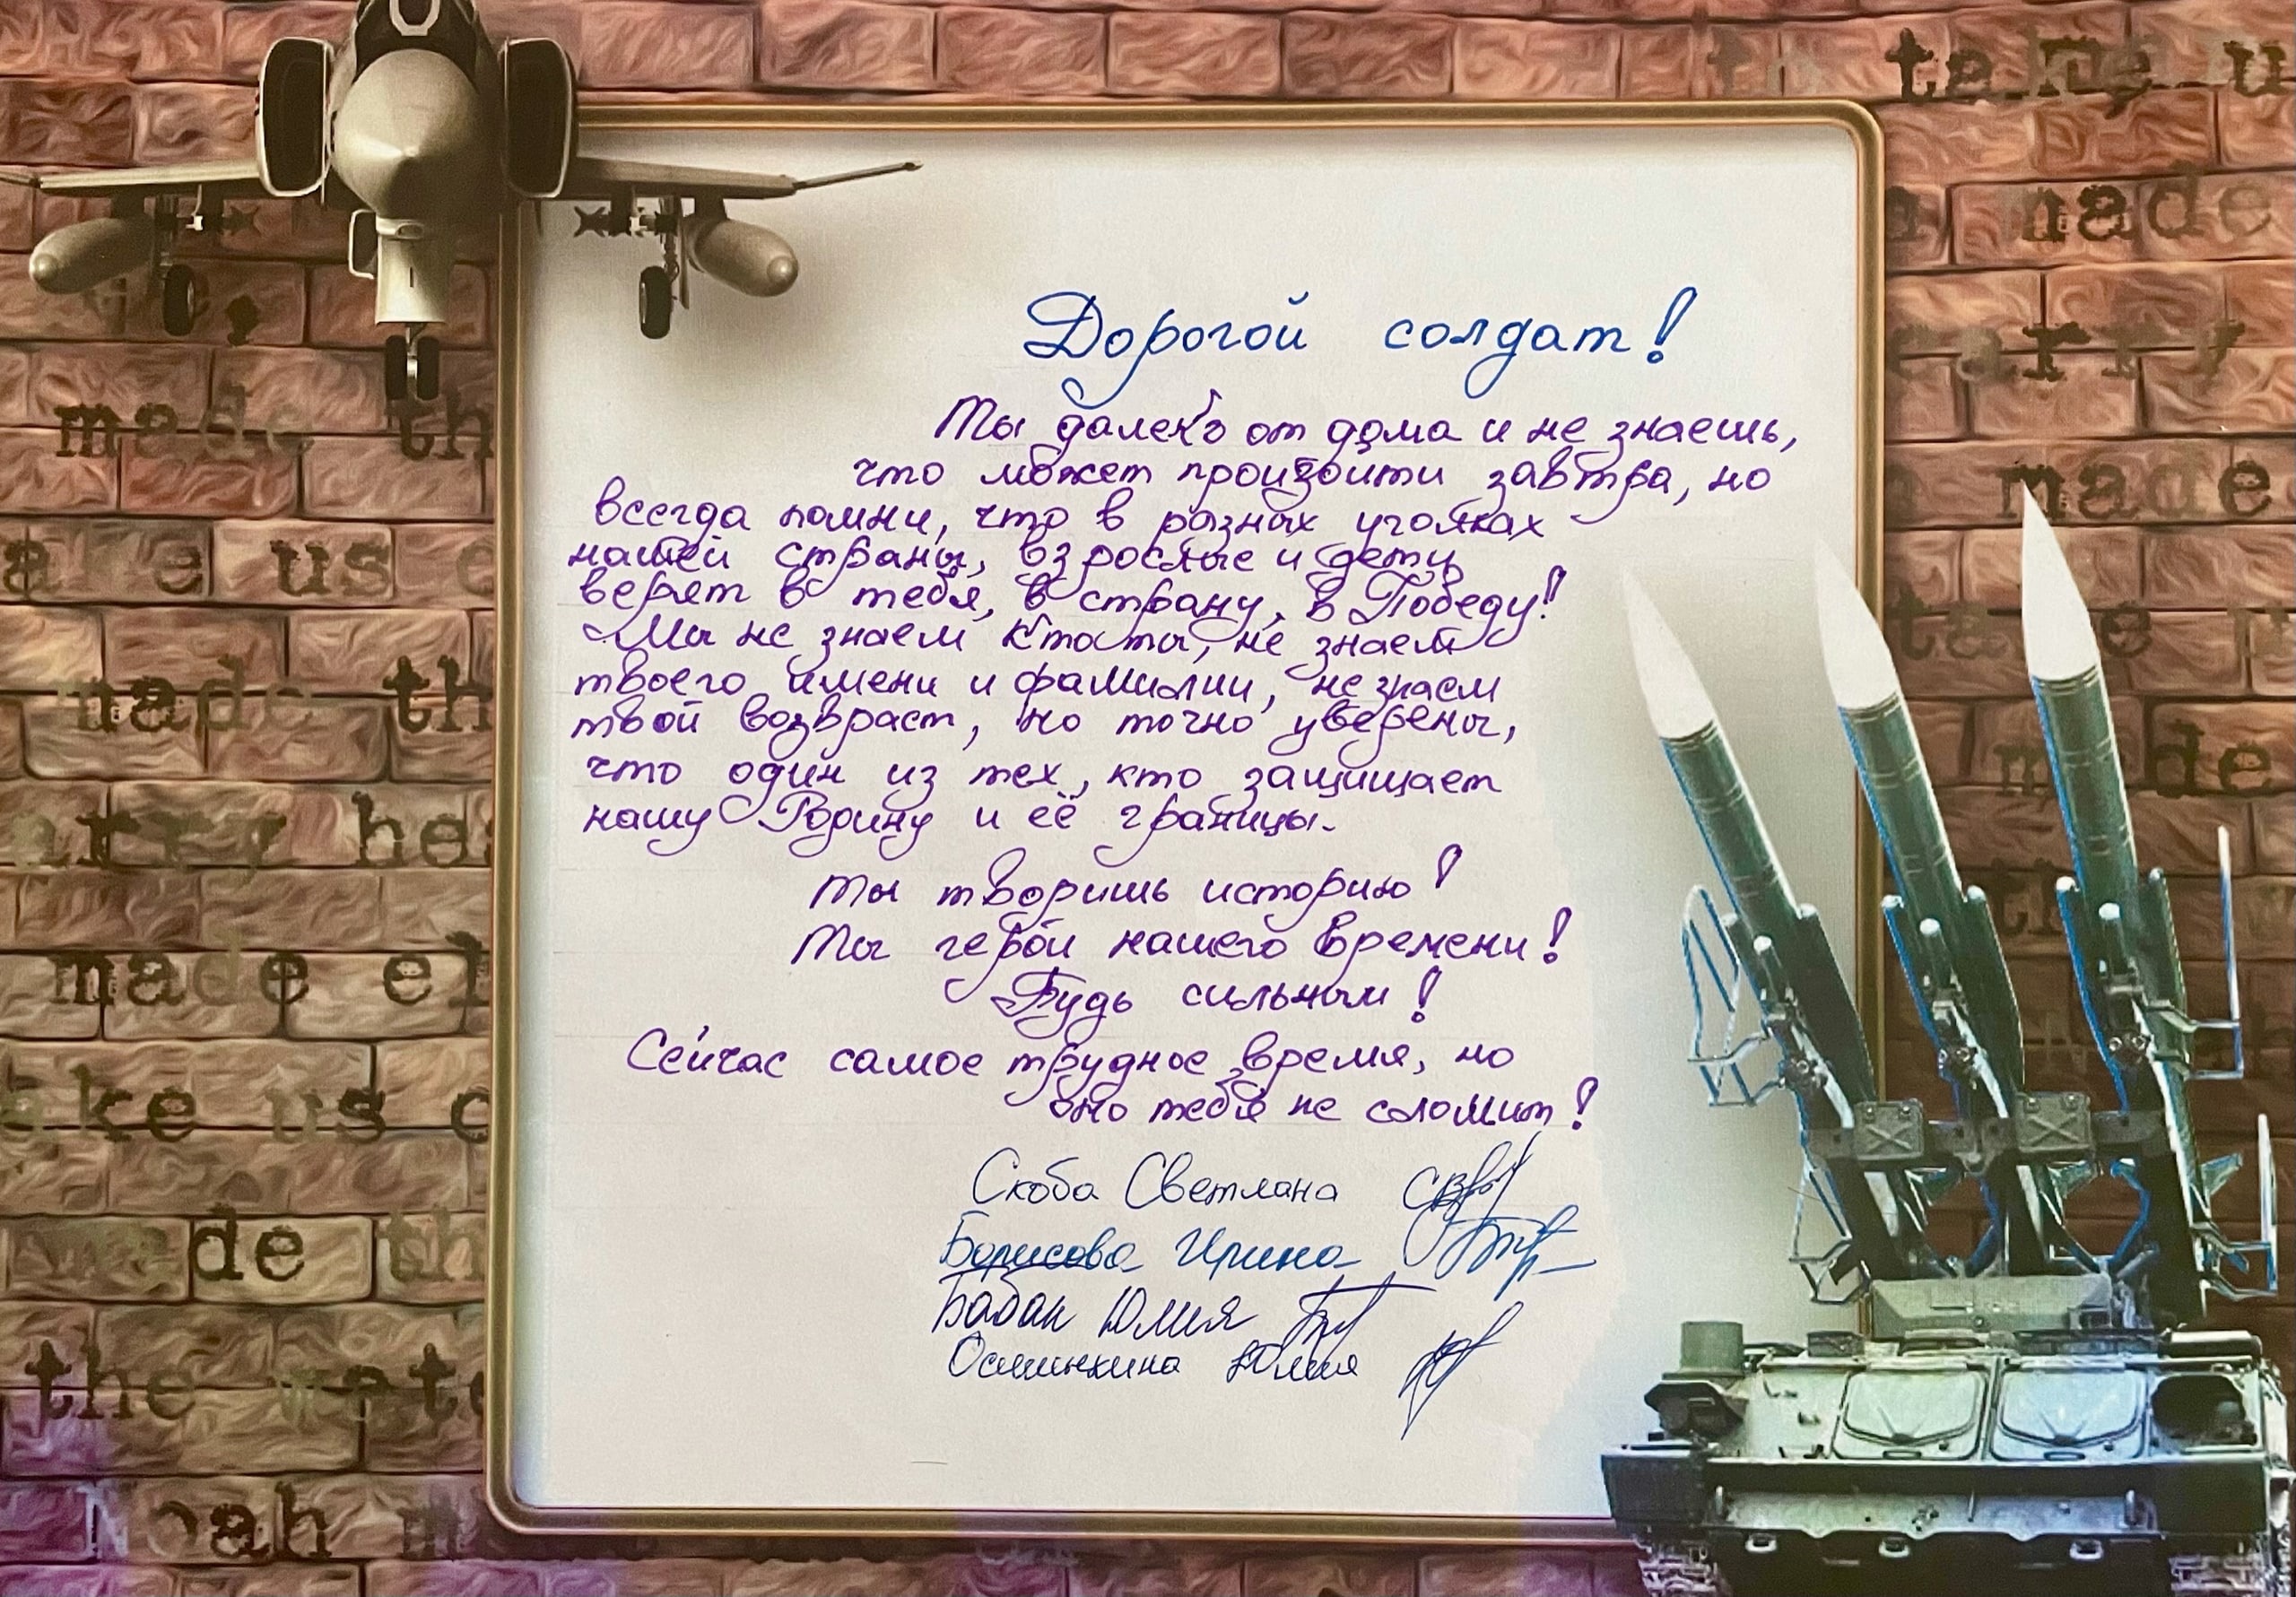 to take u
a made
carry
made th
a made
are us
made th
made
arry hea
made el
ake us c
made th
the wate
oah
Дорогой солдат!
Ты далеко от дома и не знаешь,
что может произойти завтра, но
всегда помни, что в разных уголках
нашей страны, взрослые и дети
верят в тебя, в страну, в Победу!
Мы не знаем кто ты, не знаем
твоего имени и фамилии, не знаем
твой возвраст, но точно уверены,
что один из тех, кто защищает
нашу Родину и её границы.
Ты творишь историю!
Ты герой нашего времени!
Будь сильным!
Сейчас самое трудное время, но
оно тебя не сломит!
Скоба Светлана
Борисова Ирина
Бабак Юлия
Юлия